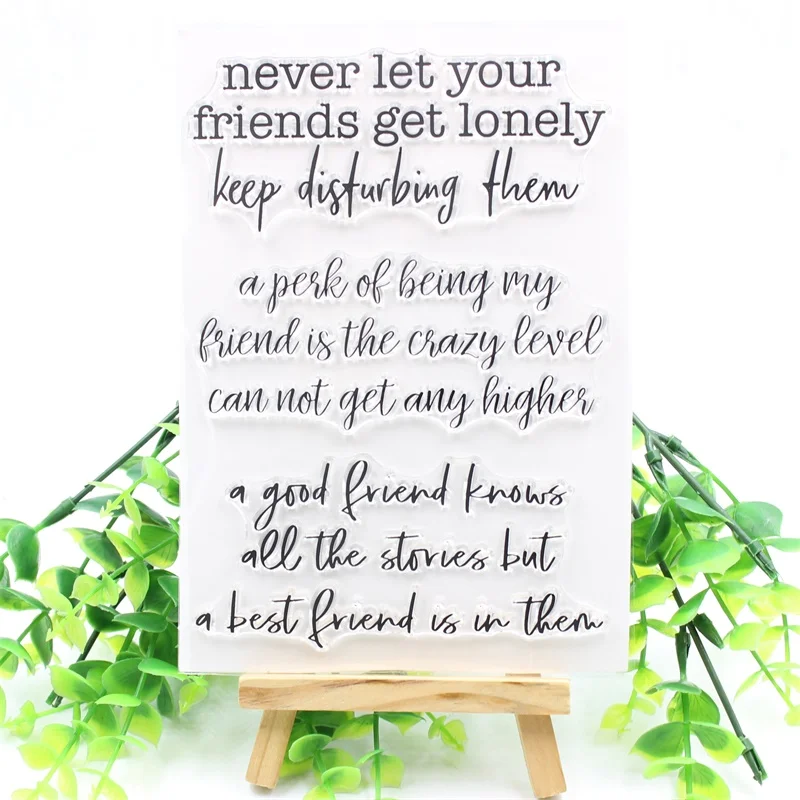 never let your
friends get lonely
keep disturbing them
a perk of being my
friend is the crazy level
can not get any higher
a good friend knows
all the stories but
a best friend is in them